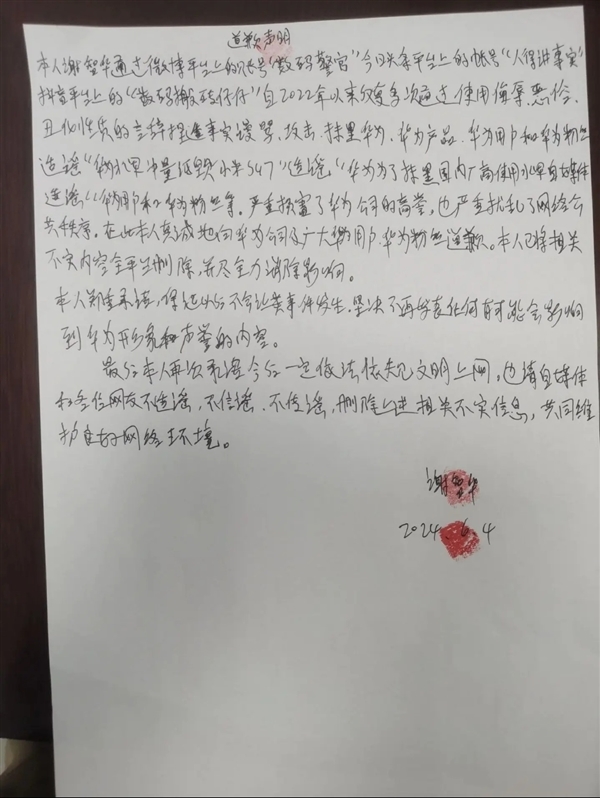 道歉声明
本人谢智华通过微博平台上的账号“数码警官”今日头条平台上的帐号“人得讲事实”
抖音平台上的“数码搬砖仔仔”自2022年以来反复多次通过使用侮辱、恶俗、
丑化性质的言辞捏造事实谩骂、攻击、抹黑华为、华为产品、华为用户和华为粉丝
造谣“华为水军少量诋毁小米SU7”造谣“华为为了抹黑国内厂商使用水军自媒体
造谣“华为用户和华为粉丝等。严重损害了华为公司的商誉，也严重扰乱了网络公
共秩序。在此本人真诚地向华为公司及广大华为用户、华为粉丝道歉。本人已将相关
不实内容全平台删除，并尽全力消除影响。
本人郑重承诺，保证以后不会让类事件发生，坚决不再发表任何有可能会影响
到华为形象和声誉的内容。
最后本人再次承诺今后一定依法依规文明上网，也请自媒体
和各位网友不造谣、不信谣、不传谣，删除上述相关不实信息，共同维
护良好网络环境。
谢智华
2024.6.4